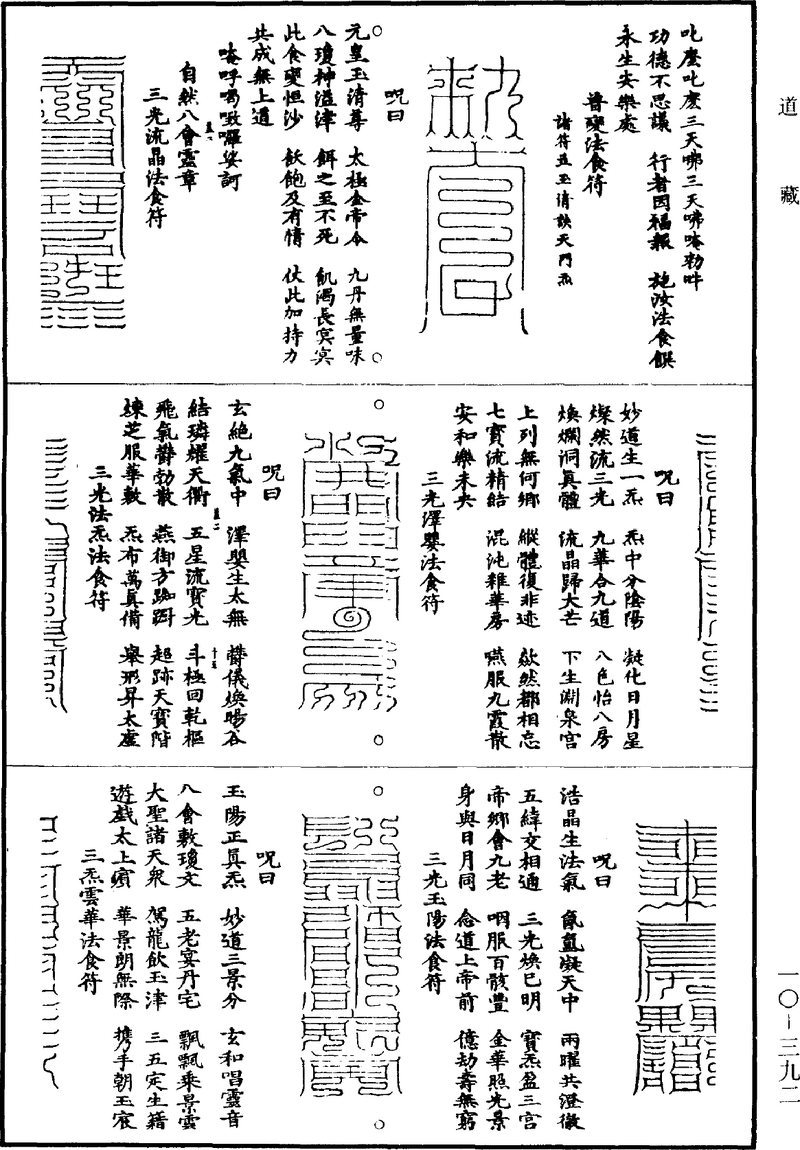 道藏
叱麼叱麼三天啼三天啼唵勑吽
功德不思議　行者因福報　施汝法食饌
永生安樂處
普變法食符
諸符並玉清訣天門炁
呪曰
元皇玉清尊　太極金帝令　九丹無量味
八瓊神滋津　餌之至不死　飢渴長冥冥
此食變恒沙　飫飽及有情　仗此加持力
共成無上道
唵呼噶㗭囉娑訶
自然八會靈章
三光流晶法食符
呪曰
妙道生一炁　炁中分陰陽　凝化日月星
燦然流三光　九華合九道　八色怡八房
煥爛洞真體　流晶歸大芒　下生淵泉宮
上列無何鄉　縱體復非迹　歘然都相忘
七寶流精結　混沌雜華房　嚥服九霞散
安和樂未央
三光澤嬰法食符
呪曰
玄絕九氣中　澤嬰生太無　欝儀煥暘谷
結璘耀天衢　五星流寶光　斗極回乾樞
飛氣欝勃散　燕御方踟躕　超跡天寶階
煉芝服華敷　炁布萬真備　舉形昇太虛
三光法炁法食符
呪曰
浩晶生法氣　氤氳凝天中　兩曜共澄徹
五緯交相通　三光煥已明　寶炁盈三宮
帝鄉會九老　咽服百骸豐　金華照光景
身與日月同　念道上帝前　億劫壽無窮
三光玉陽法食符
呪曰
玉陽正真炁　妙道三景分　玄和唱靈音
八會敷瓊文　五老宴丹宅　飄飄乘景雲
大聖諸天眾　駕龍飲玉津　三五定生籍
遊戲太上賓　華景朗無際　携手朝玉宸
三炁雲華法食符
一〇－三九二